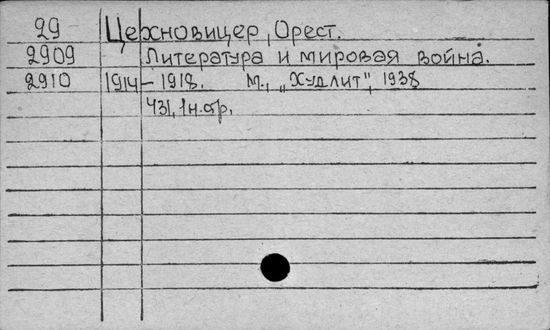 29 Цехновицер, Орест.
2909 Литература и мировая война.
2910 1914 - 1918. М., „Худлит", 1938
431, 1 н. стр.